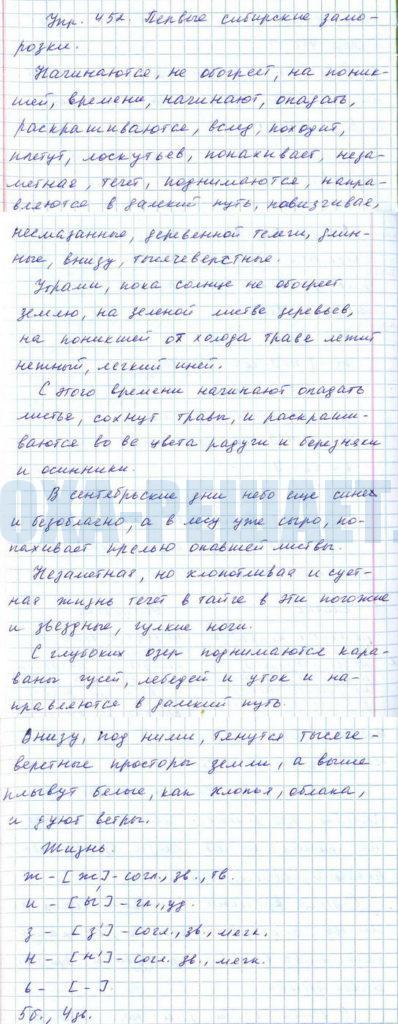 Упр. 452. Первые сибирские замо-
розки.
Начинаются, не обогреет, на поник-
шей, времени, начинают, опадать,
раскрашиваются, вслед, походит,
плетут, лоскутьев, попахивает, неза-
метная, течет, поднимаются, напра-
вляются в далекий путь, повизгивае,
несмазанные, деревенной телеги, длин-
ные, внизу, тысячеверстные.
Утрами, пока солнце не обогреет
землю, на зеленой листве деревьев,
на поникшей от холода траве лежит
нежный, легкий иней.
С этого времени начинают опадать
листье, сохнут травы, и раскраши-
ваются во все цвета радуги и березняки
и осинники.
В сентябрьские дни небо еще синее
и безоблачно, а в лесу уже сыро, по-
пахивает прелью опавшей листвы.
Незаметная, но хлопотливая и сует-
ная жизнь течет в тайге в эти погожие
и звездные, гулкие ночи.
С глубоких озер поднимаются кара-
ваны гусей, лебедей и уток и на-
правляются в далекий путь.
Внизу, под ними, тянутся тысяче-
верстные просторы земли, а выше
плывут белые, как хлопья, облака,
и дуют ветры.
Жизнь.
ж - [ж] - согл., зв., тв.
и - [ы́] - гл., уд.
з - [з'] - согл., зв., мягк.
н - [н'] - согл. зв., мягк.
ь - [-]
5б., 4зв.